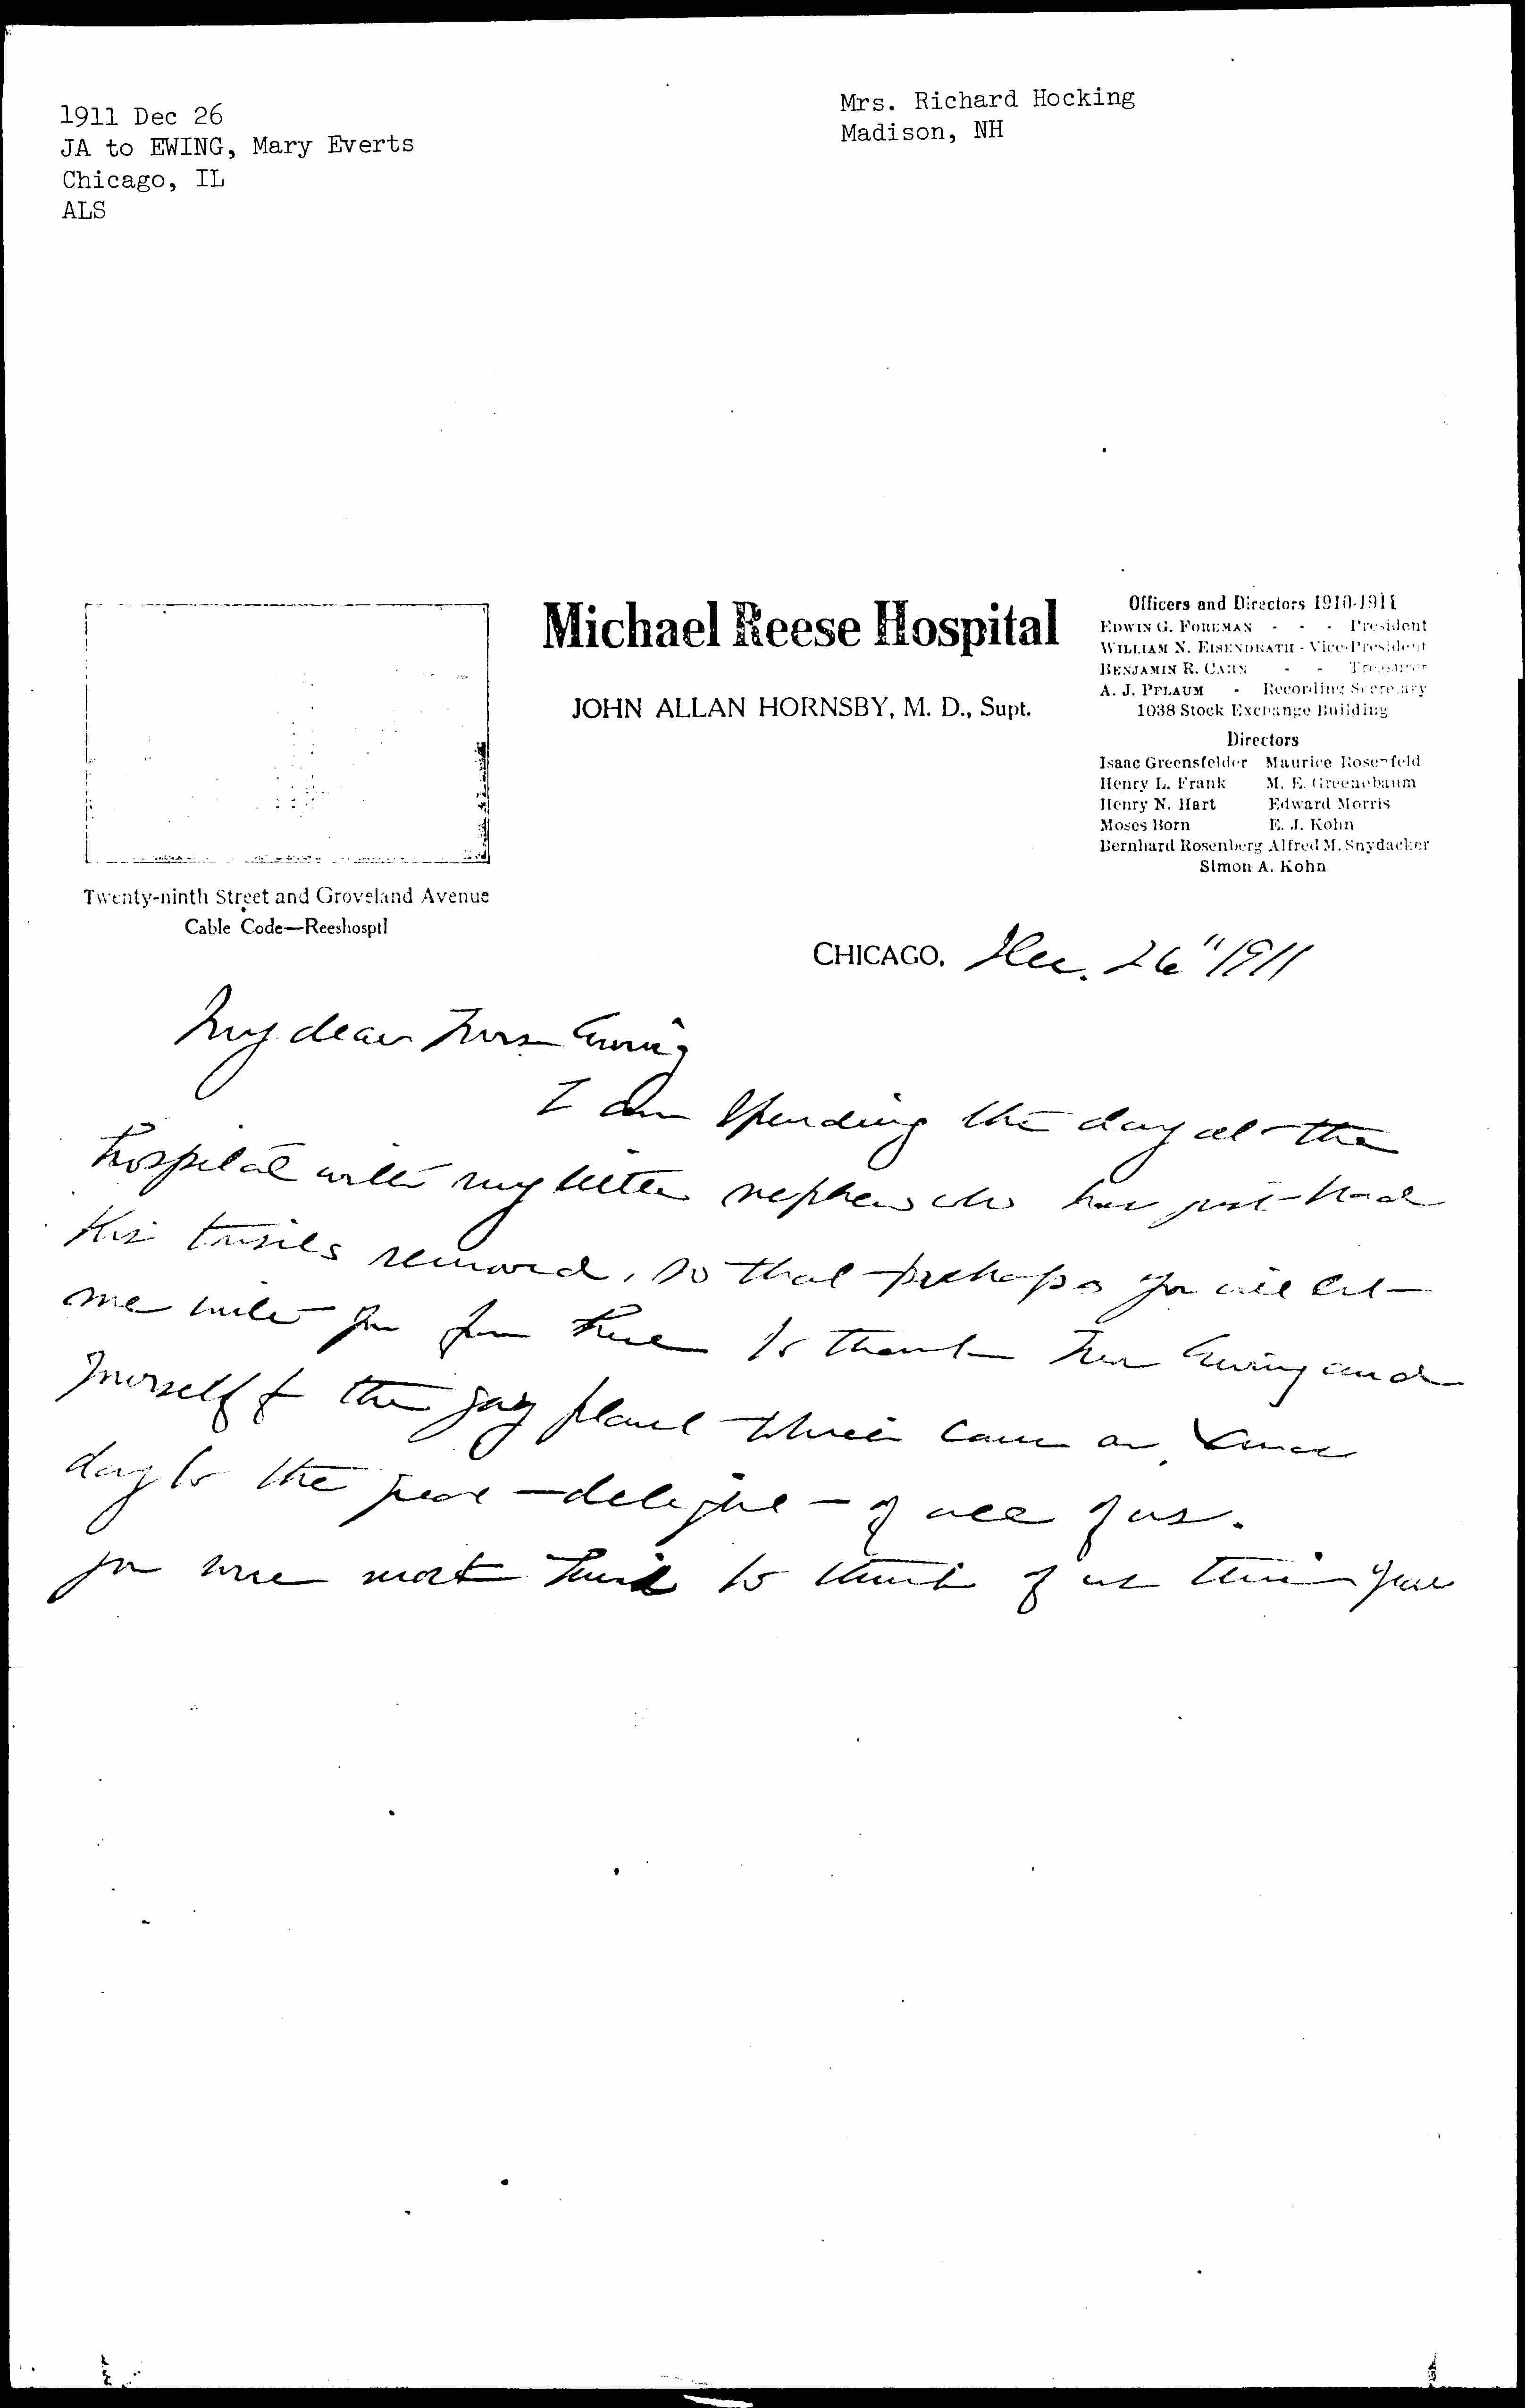 1911 Dec 26
JA to EWING, Mary Everts
Chicago, IL
ALS
Mrs. Richard Hocking
Madison, NH
Michael Reese Hospital
JOHN ALLAN HORNSBY, M. D., Supt.
Officers and Directors 1910-1911
EDWIN G. FOREMAN - - - President
WILLIAM N. EISENDRATH - Vice-President
BENJAMIN R. CAHN - - Treasurer
A. J. PFLAUM - Recording Secretary
1038 Stock Exchange Building
Directors
Isaac Greensfelder Maurice Rosenfeld
Henry L. Frank M. E. Greenebaum
Henry N. Hart Edward Morris
Moses Born E. J. Kohn
Bernhard Rosenberg Alfred M. Snydacker
Simon A. Kohn
Twenty-ninth Street and Groveland Avenue
Cable Code—Reeshosptl
CHICAGO, Dec. 26" 1911
My dear Mrs Ewing
I am spending the day at the
hospital with my little nephew who has just had
his tonsils removed, so that perhaps you will let
me write you from here to thank Mr Ewing and
yourself for the gay plant which came on Xmas
day to the great delight of all of us.
You were most kind to think of us this year